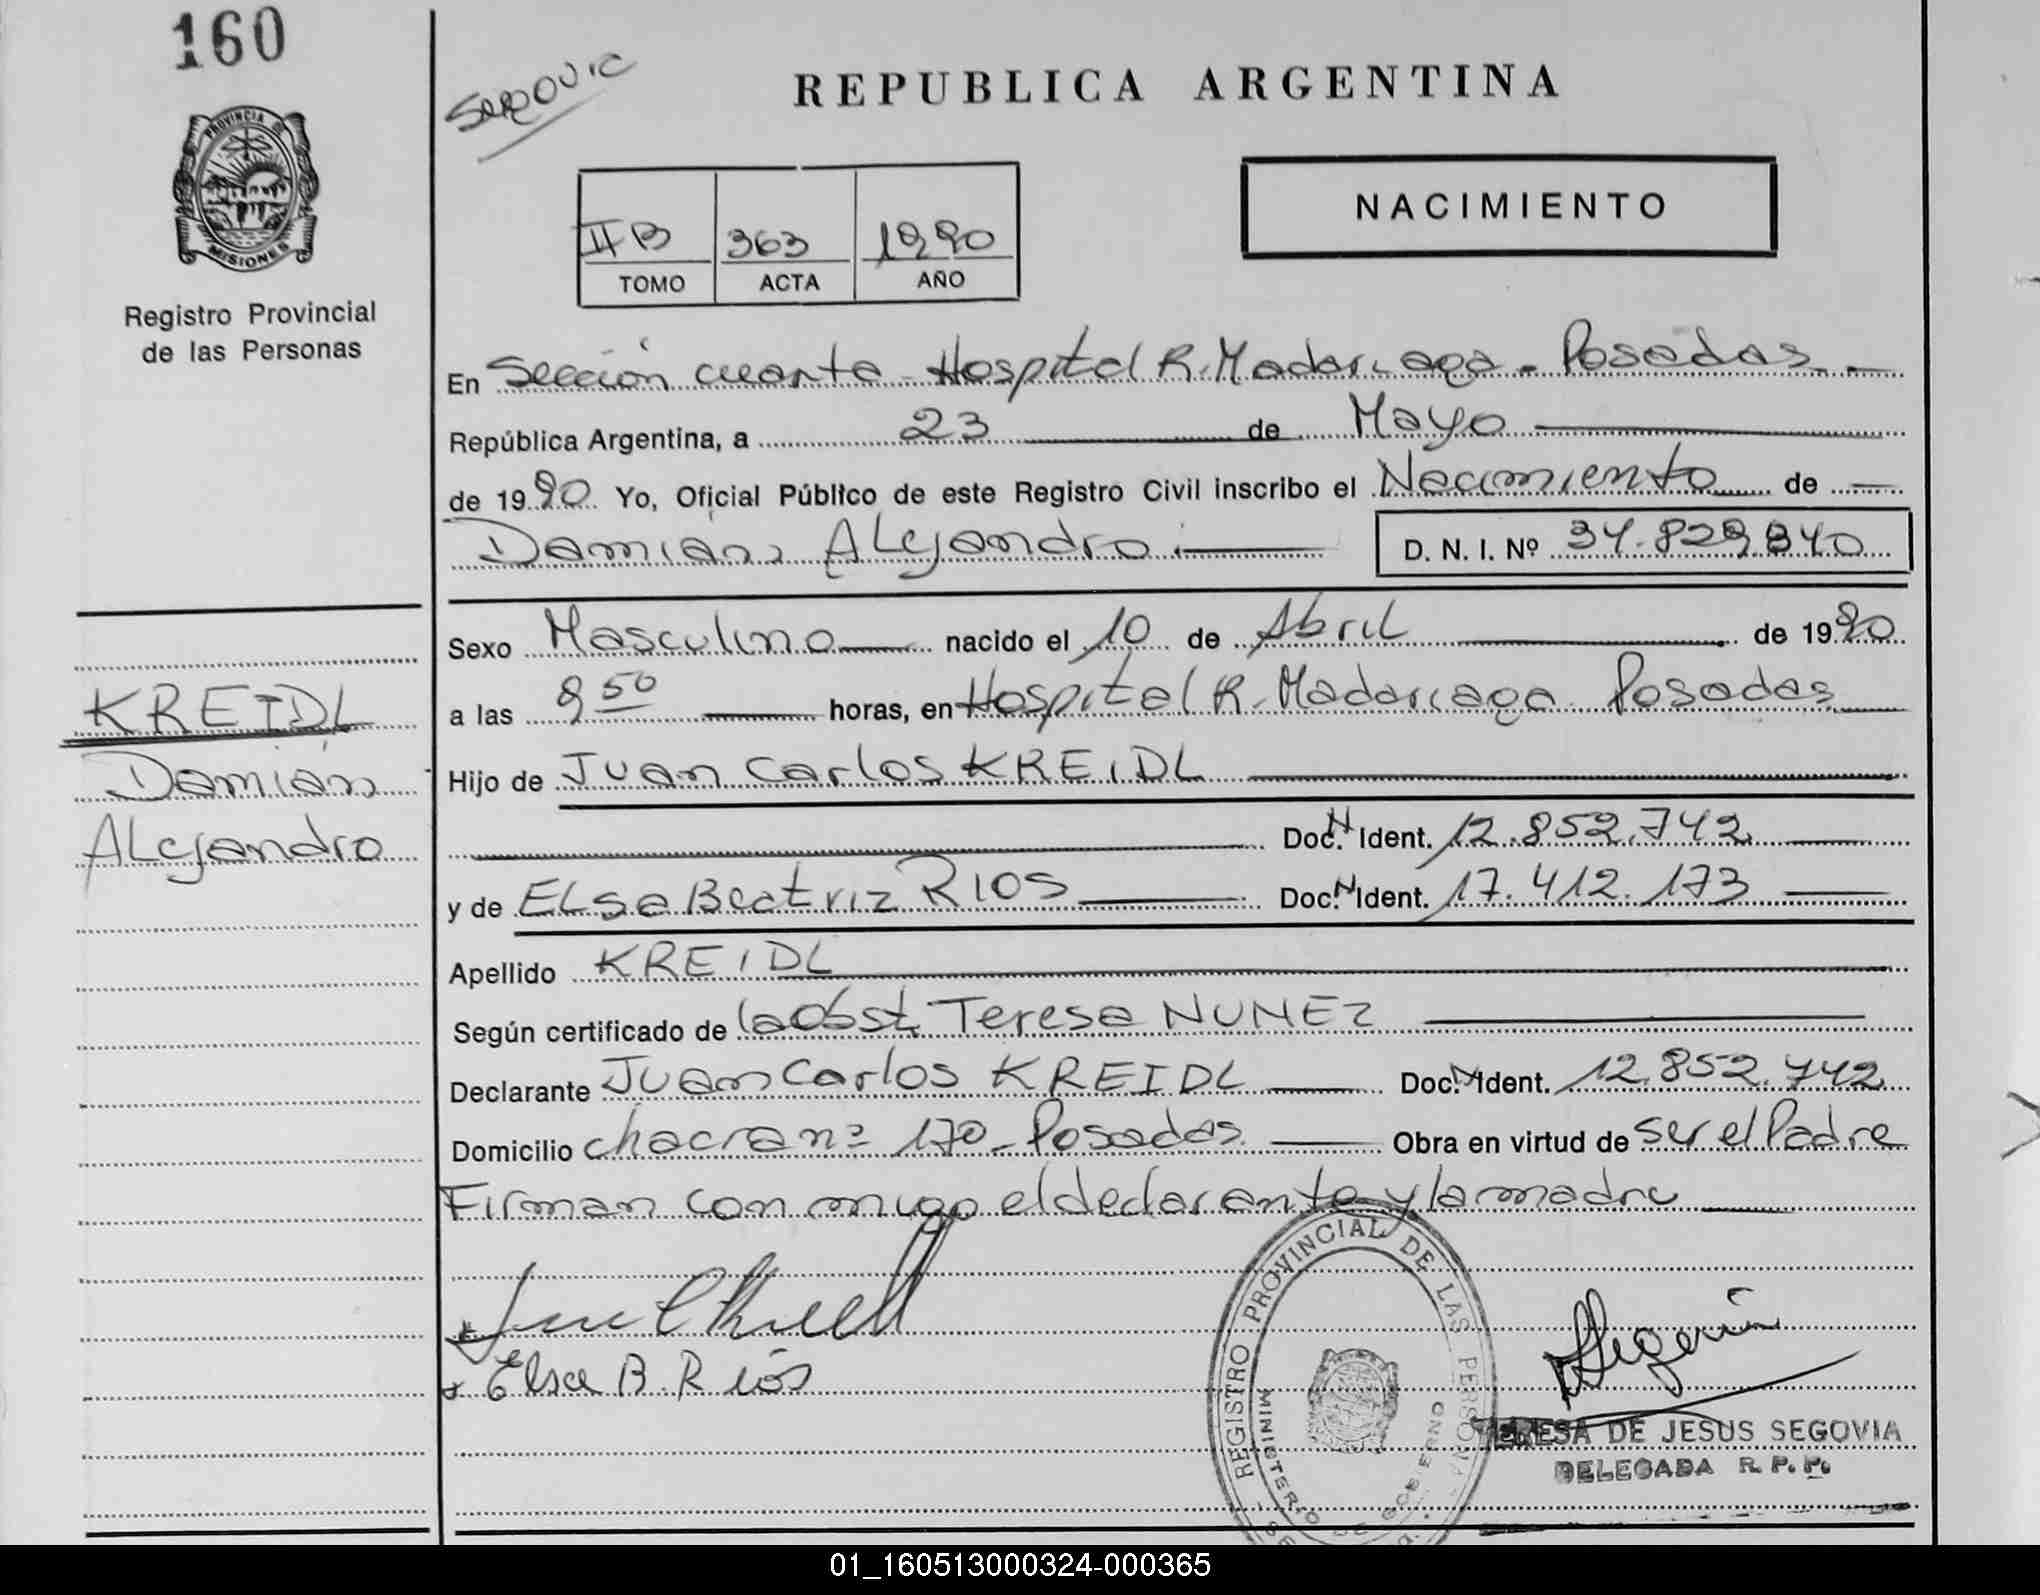 160
PROVINCIA DE
MISIONES
Registro Provincial
de las Personas
REPUBLICA ARGENTINA
NACIMIENTO
II B 363 1990
TOMO ACTA AÑO
En Sección cuarta Hospital R. Madariaga - Posadas -
República Argentina, a 23 de Mayo
de 1990 Yo, Oficial Público de este Registro Civil inscribo el Nacimiento de
Damián Alejandro D. N. I. Nº 34.829.840
Sexo Masculino nacido el 10 de Abril de 1990
a las 8 50 horas, en Hospital R. Madariaga Posadas
KREIDL
Damián
Alejandro
Hijo de Juan Carlos KREIDL
Doc. N Ident. 12.852.742
y de ELsa Beatriz RIOS Doc. N Ident. 17.412.173
Apellido KREIDL
Según certificado de la Obst. Teresa NUNEZ
Declarante Juan Carlos KREIDL Doc. N Ident. 12.852.742
Domicilio chacra nº 170 - Posadas Obra en virtud de ser el Padre
Firman con migo el declarante y la madre
Elsa B. Ríos
REGISTRO PROVINCIAL DE LAS PERSONAS
MINISTERIO DE GOBIERNO
TERESA DE JESUS SEGOVIA
DELEGADA R. P. P.
01_160513000324-000365